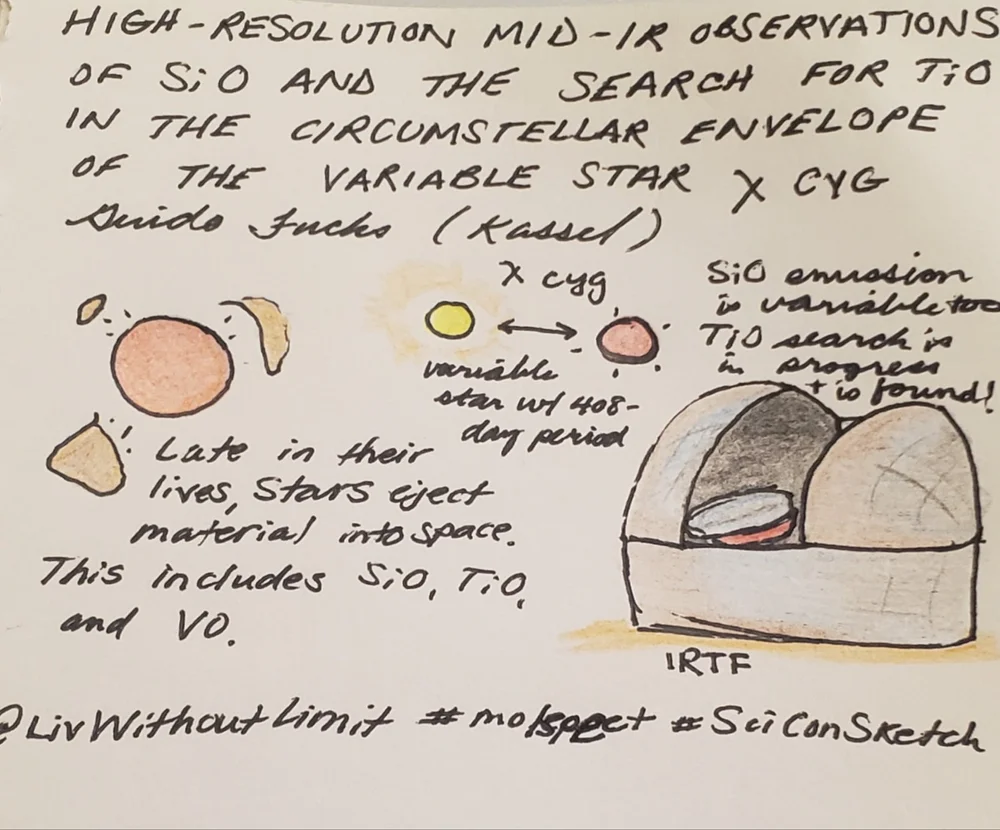 HIGH-RESOLUTION MID-IR OBSERVATIONS
OF SiO AND THE SEARCH FOR TiO
IN THE CIRCUMSTELLAR ENVELOPE
OF THE VARIABLE STAR χ CYG
Guido Fuchs (Kassel)
χ cyg
variable
star w/ 408-
day period
SiO emission
is variable too
TiO search is
in progress
+ is found!
Late in their
lives, Stars eject
material into space.
This includes SiO, TiO,
and VO.
IRTF
@LivWithoutLimit #molspect #SciConSketch